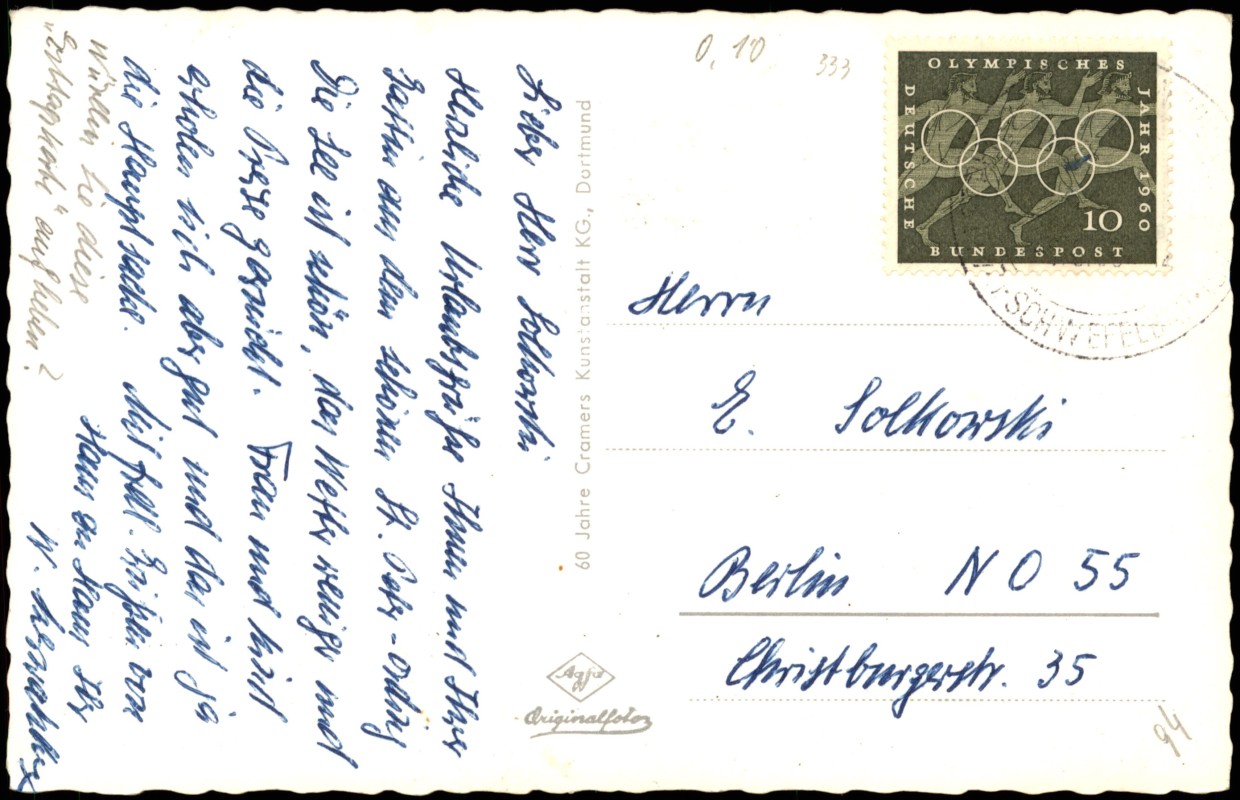 Lieber Herr Solkowski
Herzliche Urlaubsgrüße Ihnen und Ihrer
Gattin aus dem schönen St. Peter-Ording
Die See ist schön, das Wetter weniger und
die Preise gesalzt. Frau und Kind
erholen sich aber gut und das ist ja
die Hauptsache. Mit frdl. Grüßen von
Haus zu Haus Ihr
W.
würden Sie diese
"Ersttagskarte" aufheben?
60 Jahre Cramers Kunstanstalt KG., Dortmund
Agfa
Originalfoto
0,10
333
OLYMPISCHES
JAHR 1960
DEUTSCHE
BUNDESPOST
10
SCHWEFEL
Herrn
E. Solkowski
Berlin NO 55
Christburgerstr. 35
94